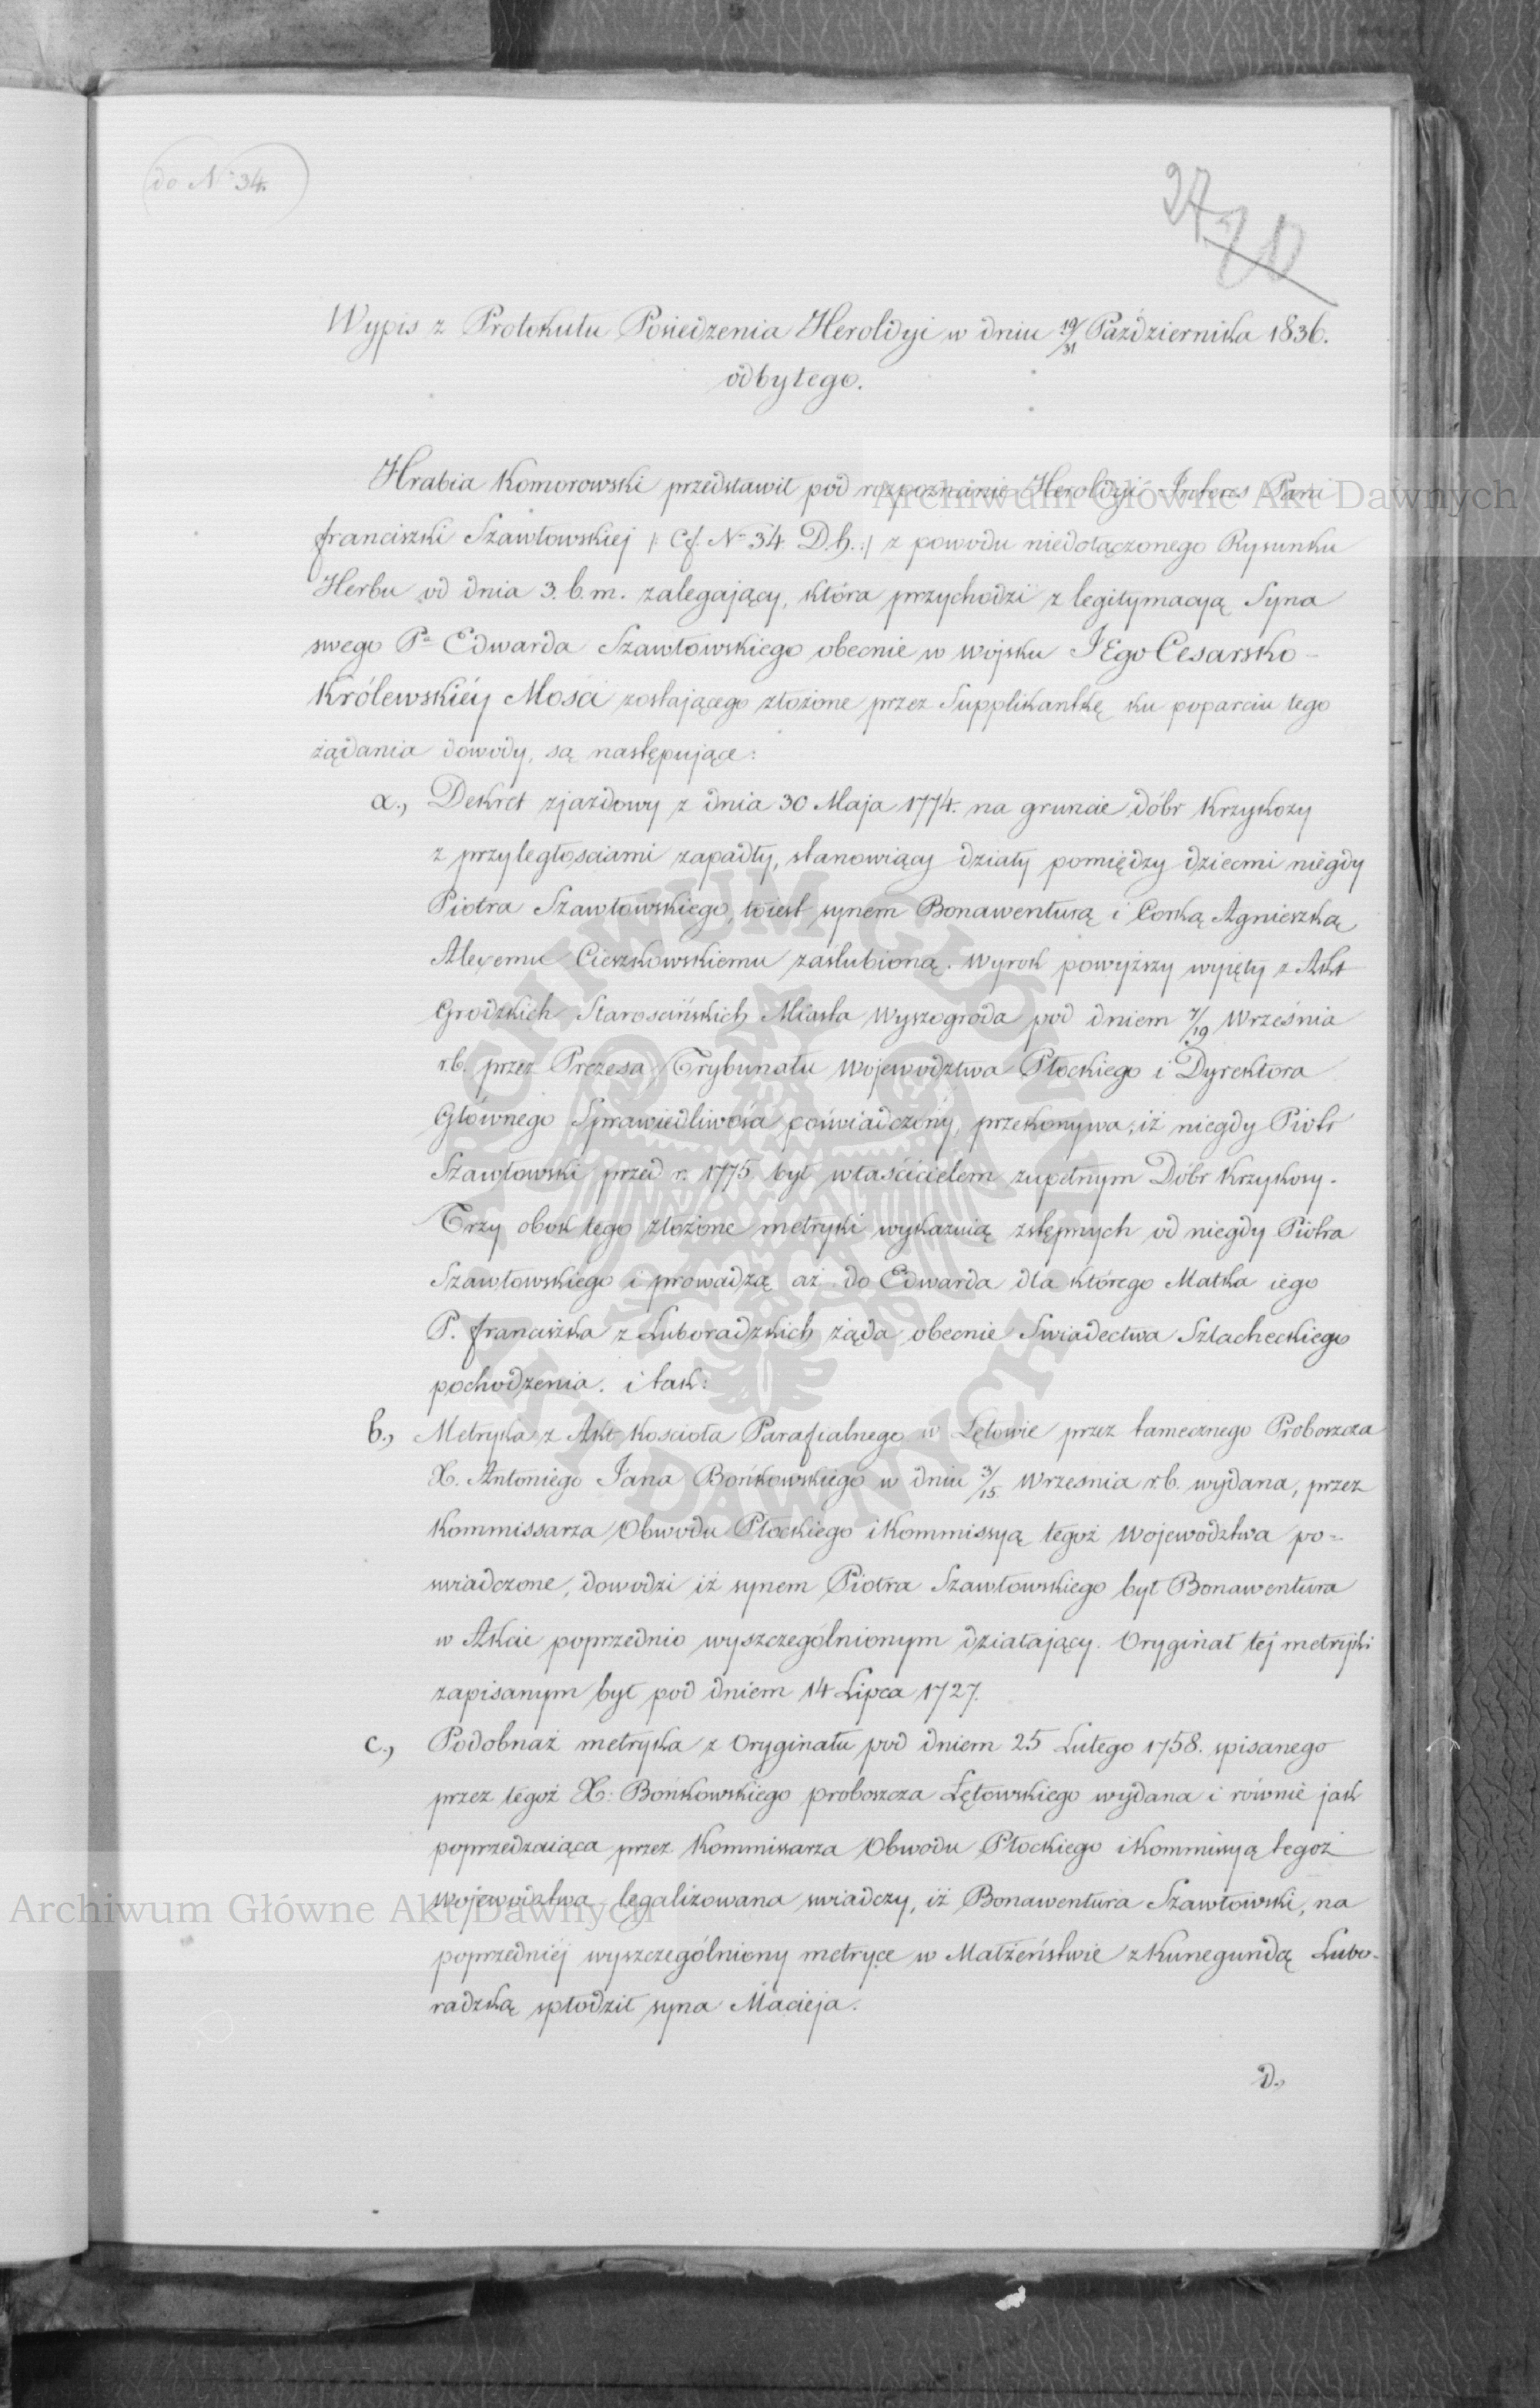 do N° 34.
27
20
Wypis z Protokułu Posiedzenia Heroldyi w dniu 19/31 Października 1836.
odbytego.
Hrabia Komorowski przedstawił pod rozpoznanie Heroldyi Interes Pani
Franciszki Szawłowskiej /: Cf. N° 34 D.h. :/ z powodu niedołączonego Rysunku
Herbu od dnia 3. b.m. zalegający, która przychodzi z legitymacyą Syna
swego Pa Edwarda Szawłowskiego obecnie w wojsku JEgo Cesarsko-
Królewskiéy Mości zostającego złożone przez Supplikantkę ku poparciu tego
żądania dowody, są następujące:
a., Dekret zjazdowy z dnia 30 Maja 1774. na gruncie dóbr Krzykozy
z przyległosciami zapadły, stanowiący działy pomiędzy dziecmi niegdy
Piotra Szawłowskiego, toiest synem Bonawenturą i Corką Agnieszką
Alexemu Cieszkowskiemu zaślubioną. Wyrok powyższy wyięty z Akt
Grodzkich Starościńskich Miasta Wyszogroda pod dniem 7/19 Września
r.b. przez Prezesa Trybunału Województwa Płockiego i Dyrektora
Głównego Sprawiedliwości poświadczony, przekonywa, iż niegdy Piotr
Szawłowski przed r. 1775 był właścicielem zupełnym Dóbr Krzykosy.
Trzy obok tego złożone metryki wykazuią zstępnych od niegdy Piotra
Szawłowskiego i prowadzą aż do Edwarda dla którego Matka iego
P. Franciszka z Luboradzkich żąda obecnie Swiadectwa Szlacheckiego
pochodzenia. i tak:
b., Metryka z Akt Kościoła Parafialnego w Łętowie przez tamecznego Proboszcza
X. Antoniego Jana Bońkowskiego w dniu 3/15 Wrzesnia r.b. wydana, przez
Kommissarza Obwodu Płockiego i Kommissyą tegoż Województwa po=
swiadczone, dowodzi iż synem Piotra Szawłowskiego był Bonawentura
w Akcie poprzednio wyszczególnionym działający. Oryginał tej metryki
zapisanym był pod dniem 14 Lipca 1727.
c., Podobnaż metryka z Oryginału pod dniem 25 Lutego 1758. spisanego
przez tegoż X: Bońkowskiego proboszcza Łętowskiego wydana i równie jak
poprzedzaiąca przez Kommissarza Obwodu Płockiego i Kommissyą tegoż
Województwa legalizowana swiadczy, iż Bonawentura Szawłowski, na
poprzedniéj wyszczególniony metryce w Małżeństwie z Kunegundą Lubo-
radzką spłodził syna Macieja.
d.,
Archiwum Główne Akt Dawnych
Archiwum Główne Akt Dawnych
ARCHIWUM GŁÓWNE AKT DAWNYCH